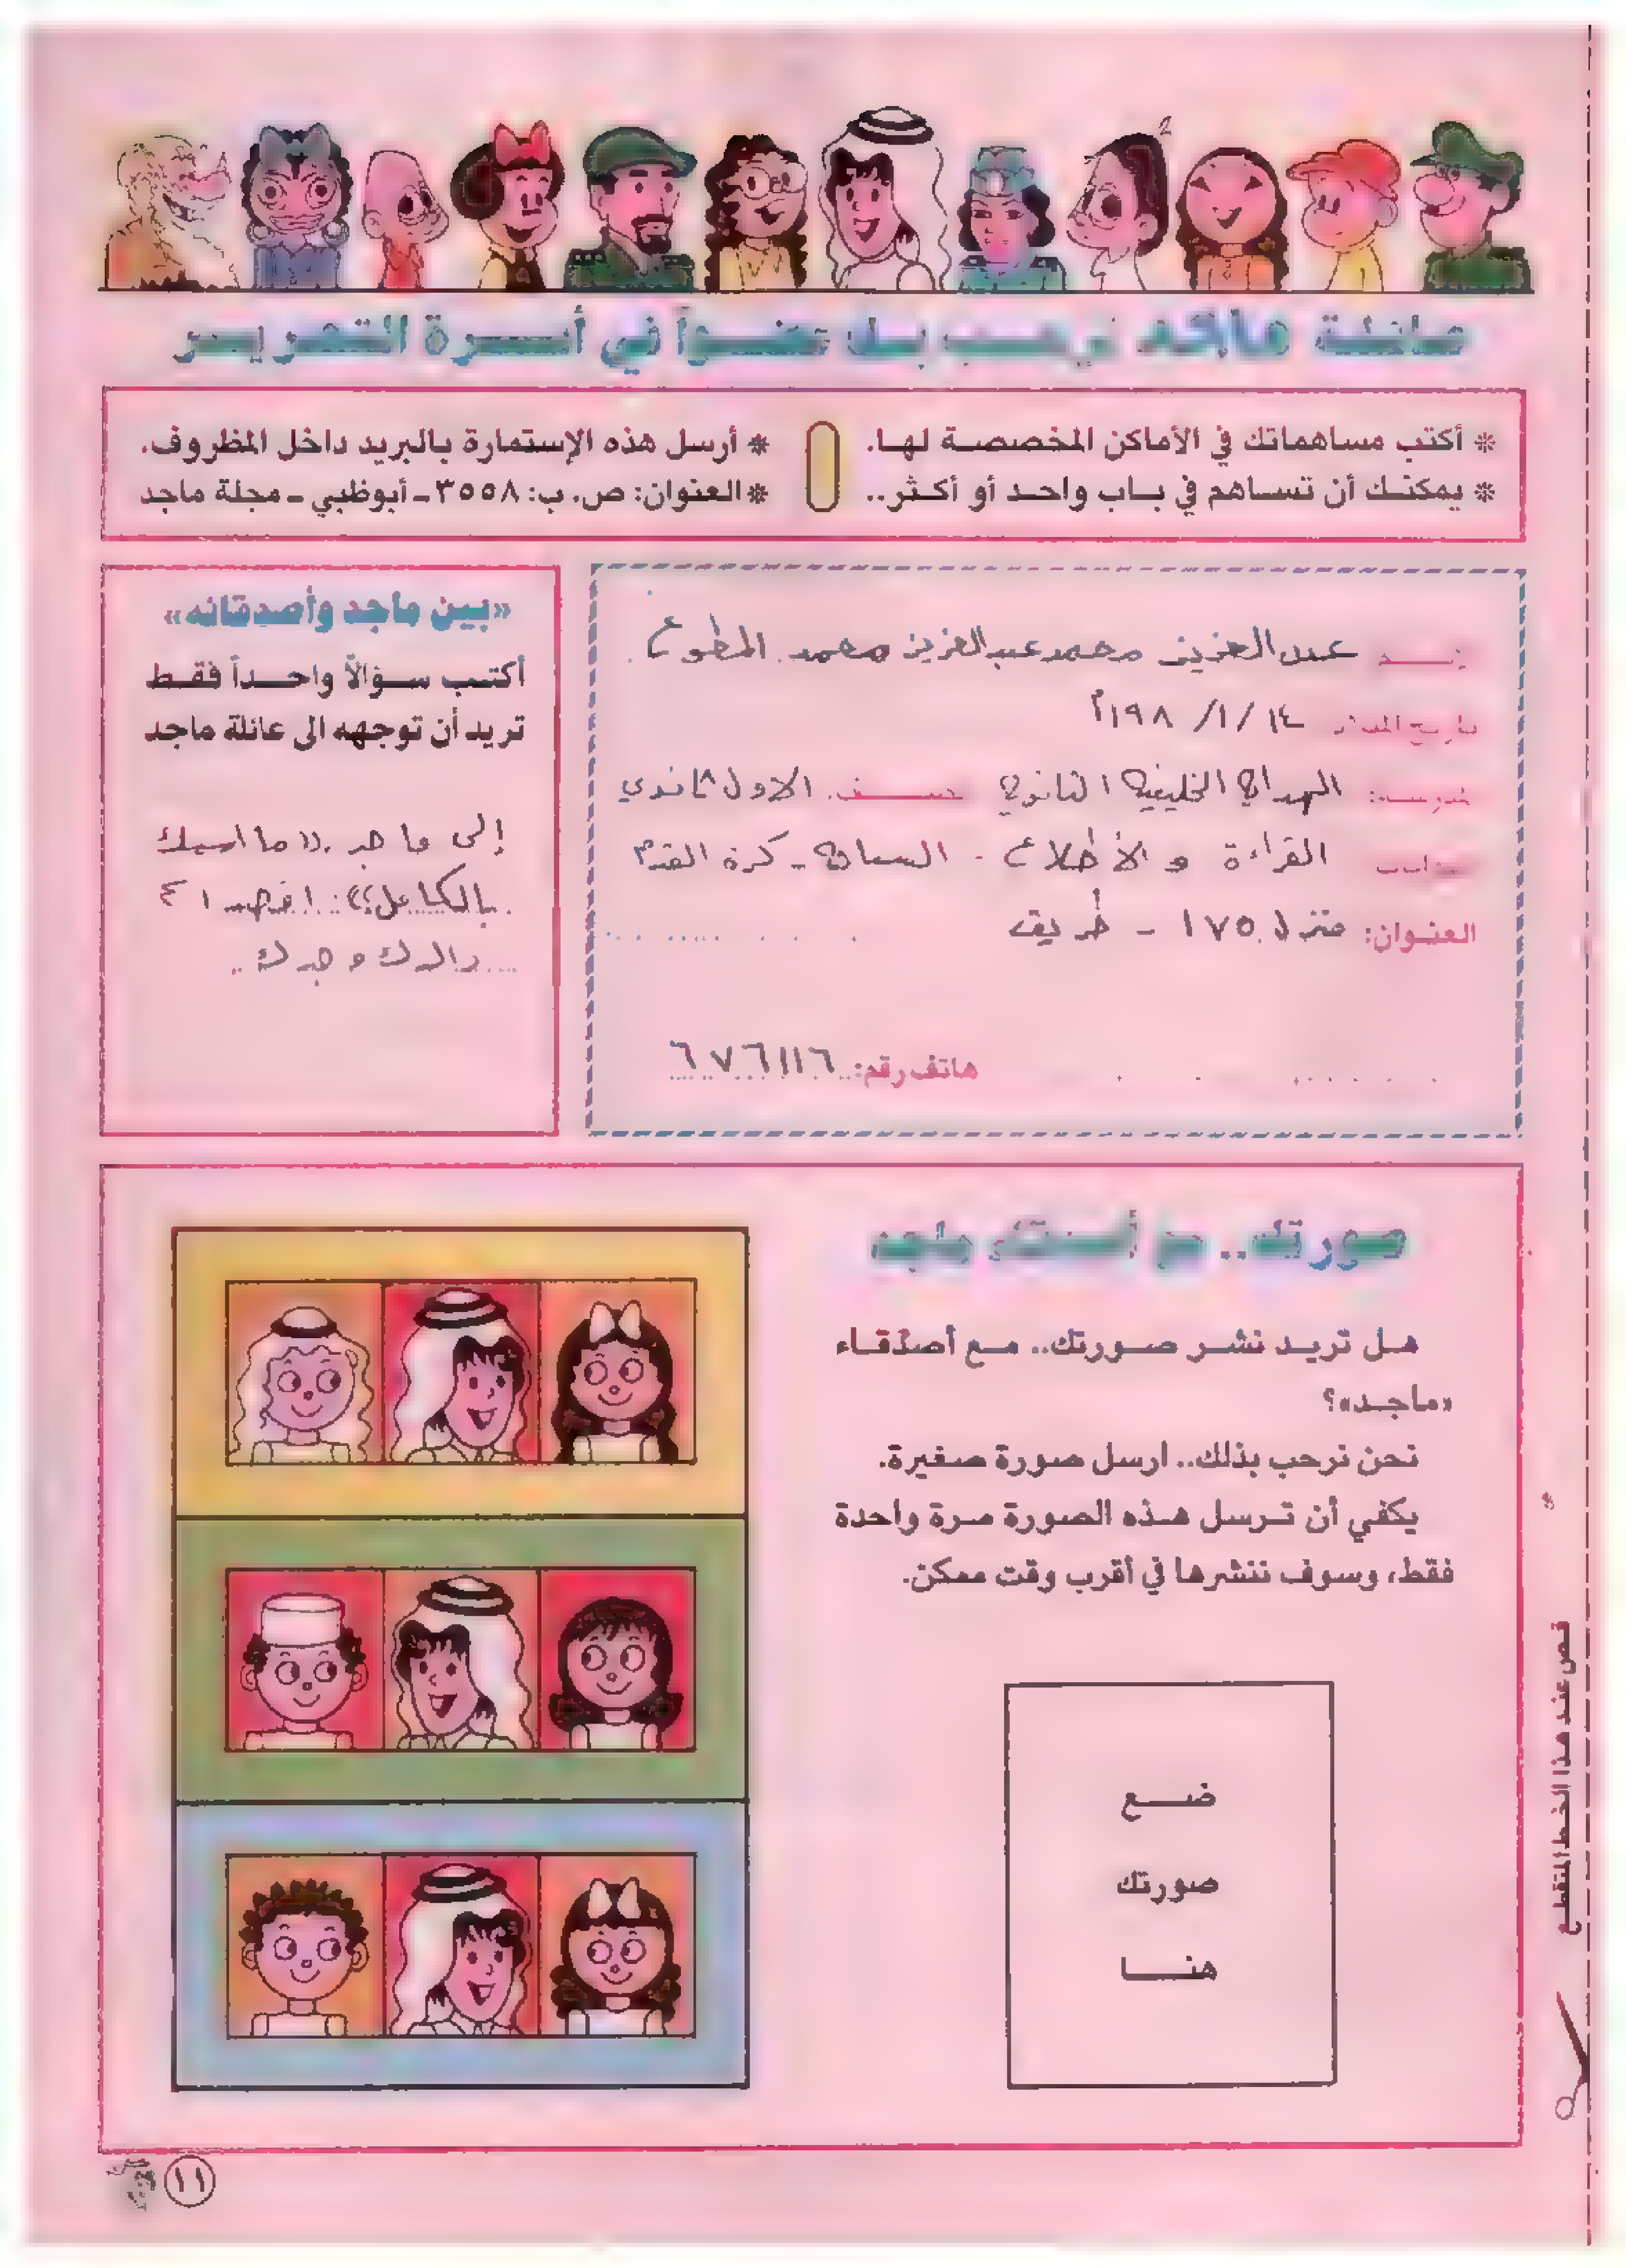 عائلة ماجد ترحب بك عضواً في أسرة التحرير
* أكتب مساهماتك في الأماكن المخصصة لها.
* يمكنك أن تساهم في باب واحد أو أكثر..
* أرسل هذه الإستمارة بالبريد داخل المظروف.
* العنوان: ص. ب: ٣٥٥٨ - أبوظبي - مجلة ماجد
عبدالعزيز محمد عبدالعزيز محمد المطوع
تاريخ الميلاد ١٤ /١/ ١٩٨٢
المدرسة: الهداية الخليفية الثانوية الصف الاول ثانوي
القراءة و الأطلاع - السباحة - كرة القدم
العنوان: منزل ١٧٥ -
هاتف رقم: ٦٧٦١١٦
«بين ماجد وأصدقائه»
أكتب سؤالاً واحداً فقط
تريد أن توجهه الى عائلة ماجد
إلى ماجد «ما اسمك
بالكامل؟» اقصد ا
والدك وجدك
صورتك.. مع أصدقاء ماجد
هل تريد نشر صورتك.. مع أصدقاء
«ماجد»؟
نحن نرحب بذلك.. ارسل صورة صغيرة.
يكفي أن ترسل هذه الصورة مرة واحدة
فقط، وسوف ننشرها في أقرب وقت ممكن.
ضع
صورتك
هنا
قص عند هذا الخط المتقطع
١١